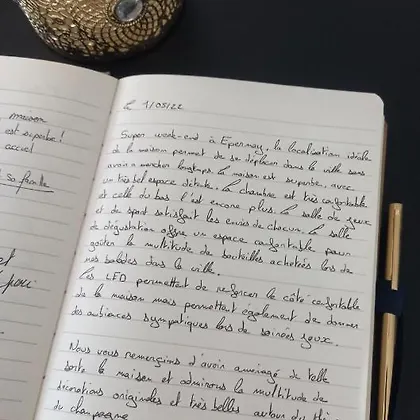 maison
est superbe !
accueil
Sa famille
Le 1/05/22
Super week-end à Epernay, la localisation idéale
de la maison permet de se déplacer dans la ville sans
avoir à marcher longtemps. La maison est superbe, avec
un très bel espace détente. La chambre est très confortable
et celle du bas l'est encore plus. La salle de jeux
et de sport satisfait les envies de chacun. La salle
de dégustation offre un espace confortable pour
goûter la multitude de bouteilles achetées lors de
nos balades dans la ville.
Les LED permettent de renforcer le côté confortable
de la maison mais permettent également de donner
des ambiances sympatiques lors de soirées jeux.
Nous vous remercions d'avoir aménagé de telle
sorte la maison et admirons la multitude de
décorations originales et très belles autour du thème
du champagne